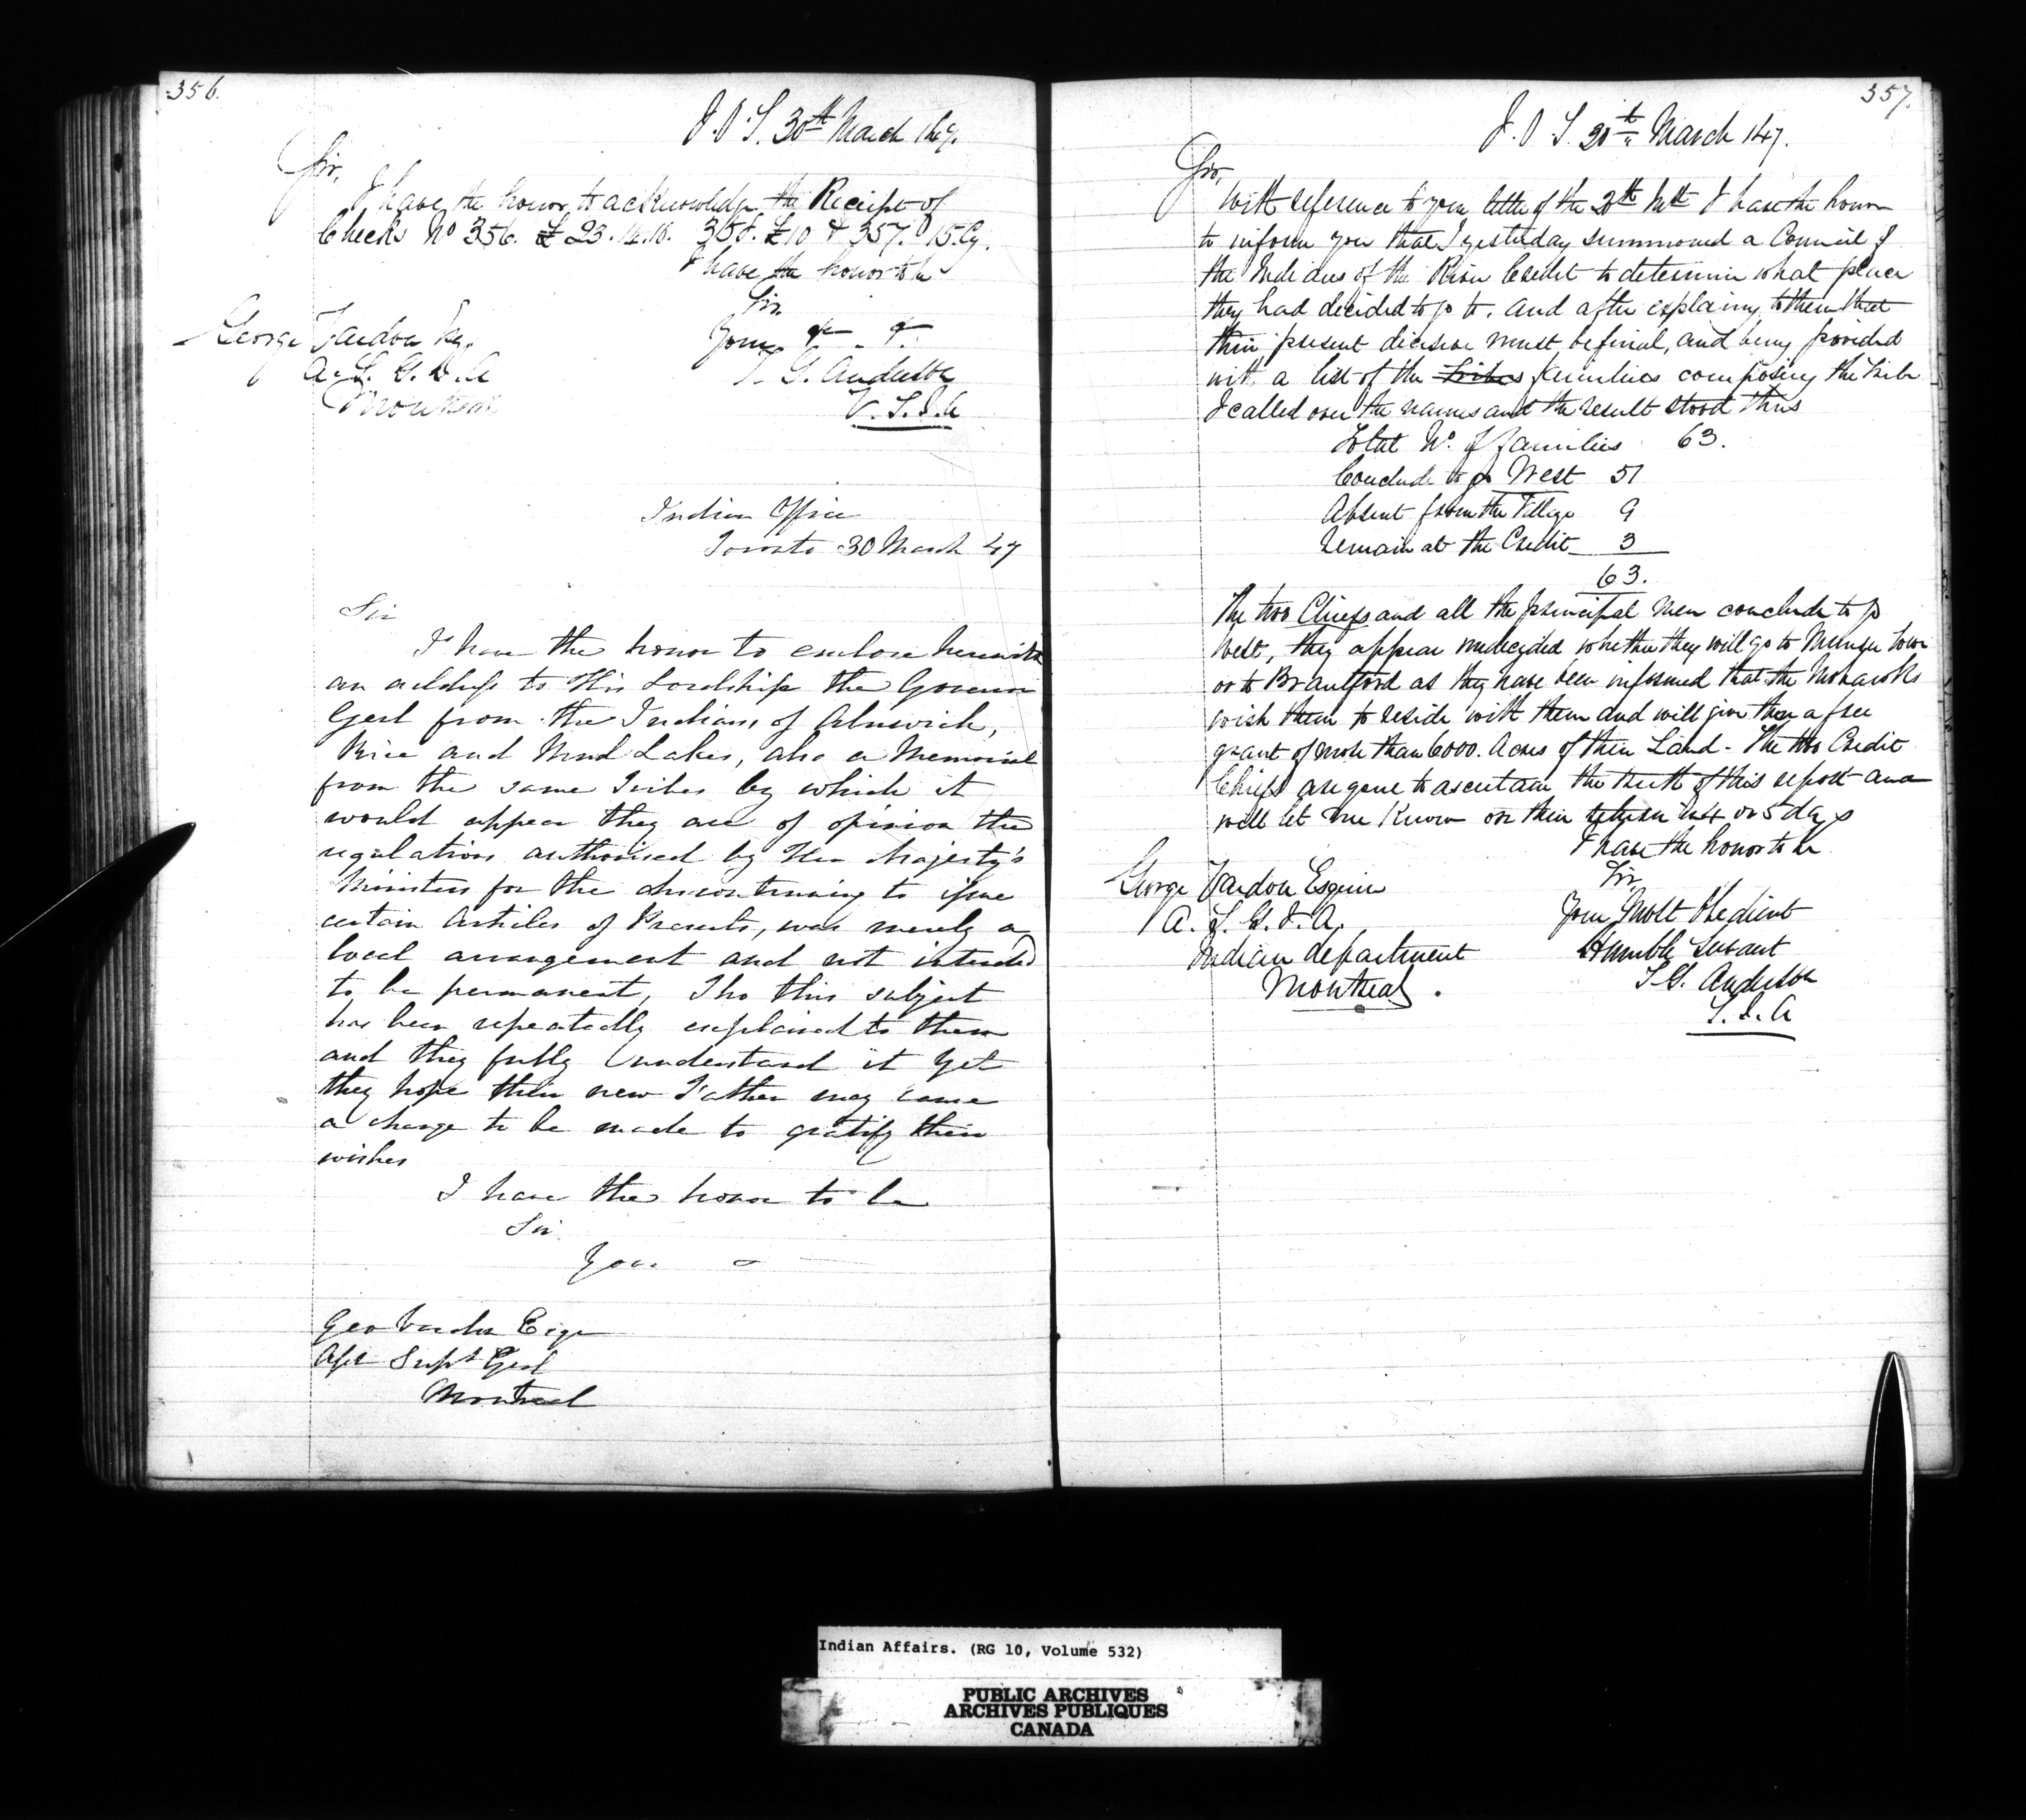 356.
30th March
Sir,
I have the honor to acknowledge the Receipt of
Checks No 356. £ 23. 358. £10 & 357.
I have the honor to be
Sir
Your
George Vardon Esq.
T. G. Anderson
A. S. G. I. A
Montreal
V. S. I. A
Indian Office
Toronto 30 March 47
Sir
I have the honor to enclose herewith
an address to His Lordship the Governor
Genl from the Indians of Alnwick,
Rice and Mud Lakes, also a Memorial
from the same Tribes by which it
would appear they are of opinion the
regulations authorised by Her Majesty's
Ministers for the discontinuing to issue
certain Articles of Presents, was merely a
local arrangement and not intended
to be permanent, Tho this subject
has been repeatedly explained to them
and they fully understand it yet
they hope their new Father may cause
a change to be made to gratify their
wishes
I have the honor to be
Sir
Your
Geo Vardon Esqr
Supt Genl
Montreal
357.
March 147.
Sir,
With reference to your letter of the I have the honor
to inform you that I yesterday summoned a Council of
the Indians of the River Credit to determine what place
they had decided to go to. and after explaining to them that
their present decision must be final, and being provided
with a list of the Tribes families composing the tribe
I called over the names and the result stood thus
Total No. of families 63.
Conclude to go West 51
Absent from the Village 9
Remain at the Credit 3
63.
The two Chiefs and all the principal men conclude to go
West, they appear undecided whether they will go to Munsee Town
or to Brantford as they have been informed that the Mohawks
wish them to reside with them and will give them a free
grant of more than 6000. Acres of their Land - The two Credit
Chiefs are gone to ascertain the truth of this report and
will let me know on their return in 4 or 5 days
I have the honor to be
George Vardon Esquire
Sir
A. S. G. I. A.
Your Most Obedient
Indian department
Humble Servant
Montreal.
T G. Anderson
S. I. A
Indian Affairs. (RG 10, Volume 532)
PUBLIC ARCHIVES
ARCHIVES PUBLIQUES
CANADA